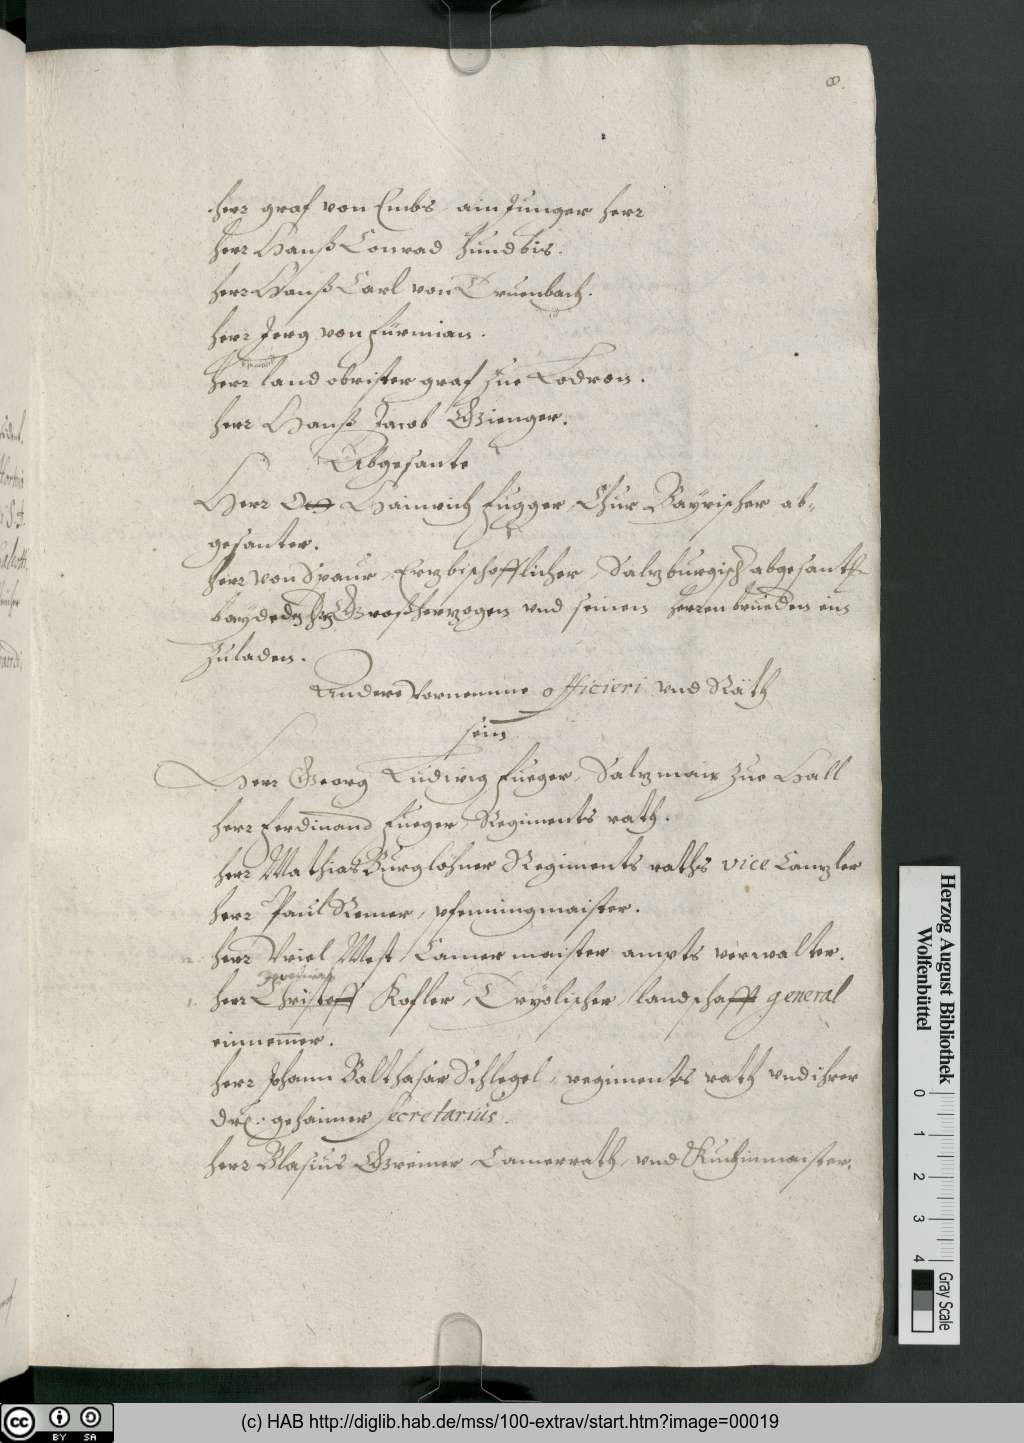 8.
herr graf von Embs, ain Junger herr
herr Hanß Conrad Hundbis.
herr Hanß Carl von Truenbach.
herr Jerg von Fürmian.
herr land obrister graf zue Lodron.
herr Hanß Jacob Gienger.
Abgesante
Herr Ott Hainrich Fugger, Chur Bayrischer ab-
gesanter.
herr von Spaur, Erzbischofflicher, Salzburgisch abgesanth
bayde den Großherzogen vnd seinen herren brueden ein
zuladen.
Andere Vornemme officieri vnd Räth
sein
Herr Georg Ludwig Fueger, Salzmair zue Hall
herr Ferdinand Fueger, Regiments rath.
herr Mathias Burglehner Regiments raths vice Canzler
herr Paul Remer, pfenningmaister.
herr Vriel Mest, Camermaister ampts verwalter.
herr Christoff Kofler, Tyrolischer, landschafft general
einnemer.
herr Johann Balthasar Schlegel, regiments rath vnd ihrer
Drl: gehaimer secretarius.
herr Blasius Greimer Camerrath, vnd Kuchinmaister.
Herzog August Bibliothek
Wolfenbüttel
0 1 2 3 4
Gray Scale
cc BY SA
(c) HAB http://diglib.hab.de/mss/100-extrav/start.htm?image=00019